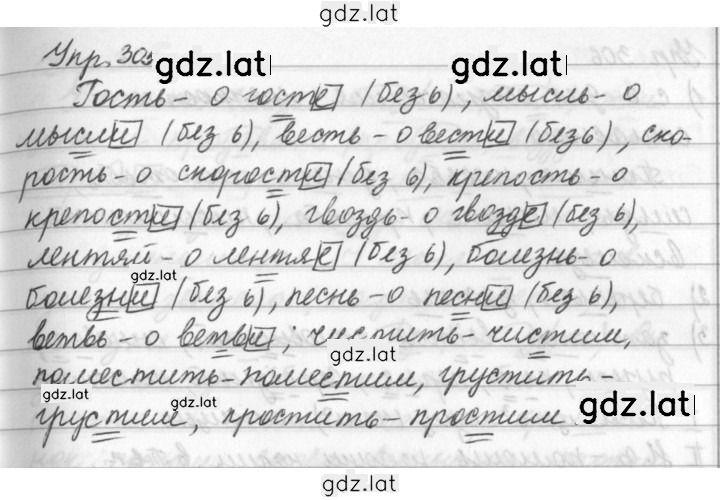 gdz.lat
Упр. 305
gdz.lat gdz.lat
Гость - о госте (без ь), мысль - о
мысли (без ь), весть - о вести (без ь), ско-
рость - о скорости (без ь), крепость - о
крепости (без ь), гвоздь - о гвозде (без ь),
лентяй - о лентяе (без ь), болезнь - о
gdz.lat
болезни (без ь), песнь - о песни (без ь),
ветвь - о ветви; чистить - чистим,
gdz.lat
поместить - поместим, грустить -
gdz.lat gdz.lat gdz.lat
грустим, простить - простим
gdz.lat